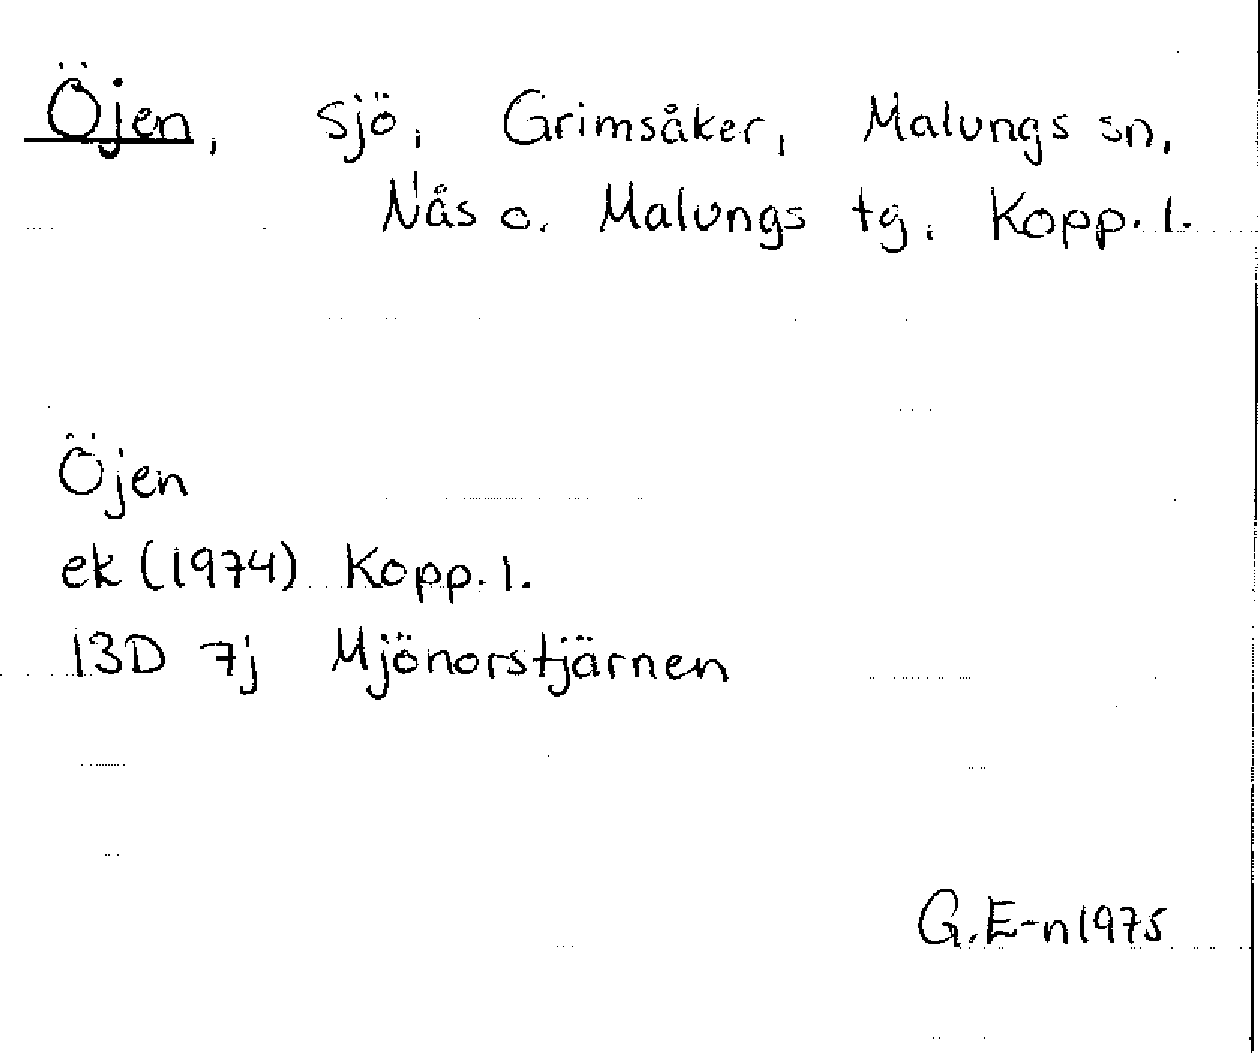 Öjen, sjö, Grimsåker, Malungs sn,
Nås o. Malungs tg, Kopp. l.
Öjen
ek (1974) Kopp. l.
13D 7j Mjönorstjärnen
G.E-n 1975